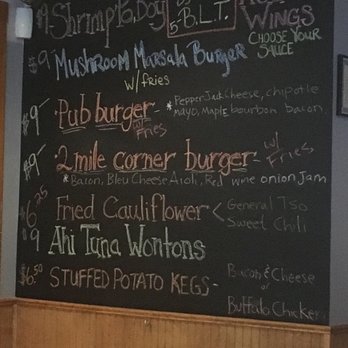 $9 Shrimp Po Boy
5- B.L.T.
WINGS
CHOOSE YOUR
SAUCE
$9 MUSHROOM MARSALA BURGER
W/ fries
$9 - Pub burger - w/ Fries
* Pepper Jack Cheese, chipotle
mayo, Maple bourbon bacon
$9 - 2 mile corner burger - w/ Fries
* Bacon, Bleu Cheese Aioli, Red wine onion Jam
$6.25 Fried Cauliflower < General Tso
Sweet Chili
$9 Ahi Tuna Wontons
$6.50 STUFFED POTATO KEGS - Bacon & Cheese
or
Buffalo Chicken